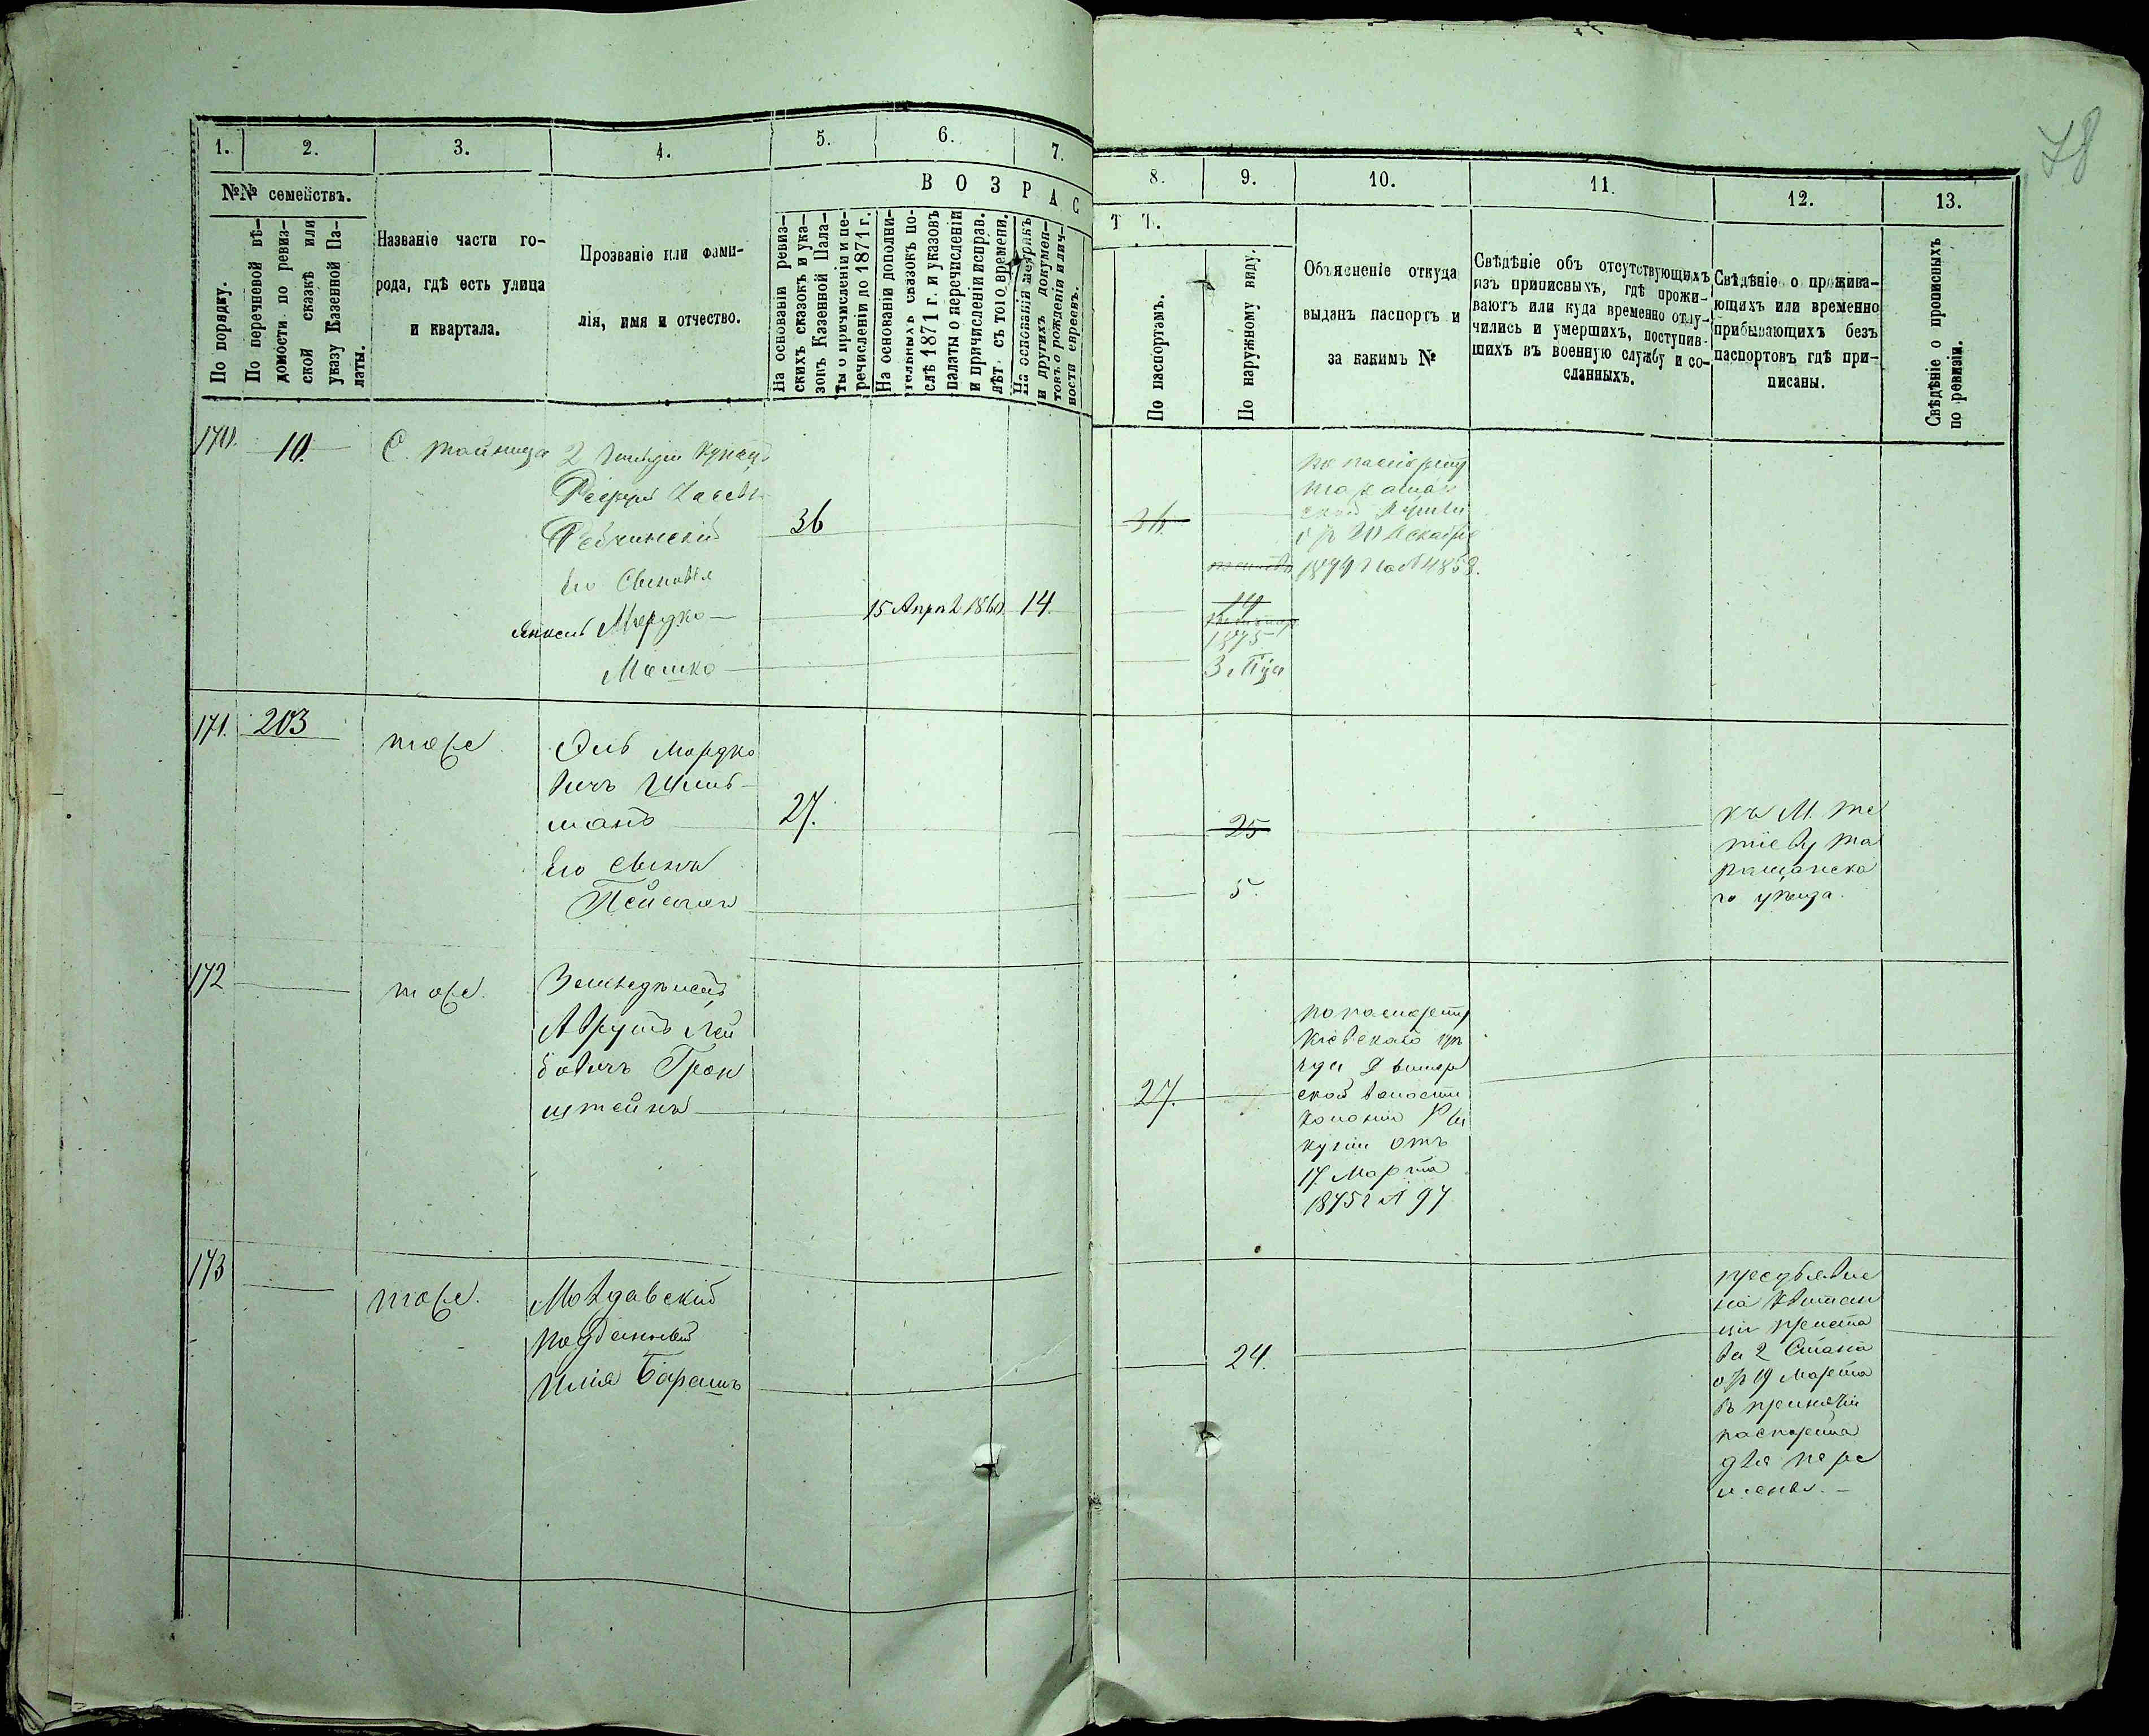 78
1.
2.
3.
4.
5.
6.
7.
8.
9.
10.
11.
12.
13.
№№ семействъ.
ВОЗРАСТЪ.
По порядку.
По перечневой вѣ-
домости по ревиз-
ской сказкѣ или
указу Казенной Па-
латы.
Названіе части го-
рода, гдѣ есть улица
и квартала.
Прозваніе или фами-
лія, имя и отчество.
На основаніи ревиз-
скихъ сказокъ и ука-
зовъ Казенной Пала-
ты о причисленіи и пе-
речисленіи до 1871 г.
На основаніи дополни-
тельныхъ сказокъ по-
слѣ 1871 г. и указовъ
палаты о перечисленіи
и причисленіи исправ.
лѣт. съ того времени.
На основаніи метрикъ
и другихъ докумен-
товъ о рожденіи и лич-
ности евреевъ.
По паспортамъ.
По наружному виду.
Объясненіе откуда
выданъ паспортъ и
за какимъ №
Свѣдѣніе объ отсутствующихъ
изъ приписныхъ, гдѣ прожи-
ваютъ или куда временно отлу-
чились и умершихъ, поступив-
шихъ въ военную службу и со-
сланныхъ.
Свѣдѣніе о прожива-
ющихъ или временно
прибывающихъ безъ
паспортовъ гдѣ при-
писаны.
Свѣдѣніе о прописныхъ
по ревизіи.
170.
10.
С. Тайница
2 Гильдіи Купецъ
36
36
по паспорту
Таращан
ской Думы
1874 г. за № 4858.
Его Сыновья
Янкель Мордко
15 Апрѣл 1860
14.
14
1875
Мошко
171.
203
тоже
Эль Мордко
вичъ Шиль
манъ
27.
25
Его сынъ
Пейсахъ
5.
къ М. Те
тіеву Та
ращанска
го уѣзда.
172
тоже.
Земледѣлецъ
Аврумъ Лей
бовичъ Грон
штейнъ
27.
по паспорту
Кіевскаго уѣ
зда
ской волости
колоніи
отъ
17 Марта
1875 г № 97
173
тоже.
Молдавскій
подданный
Илія Барашъ
24.
предъявле
на квитан
ція приста
ва 2 Стана
отъ 19 Марта
въ принятіи
паспорта
для пере
мены.